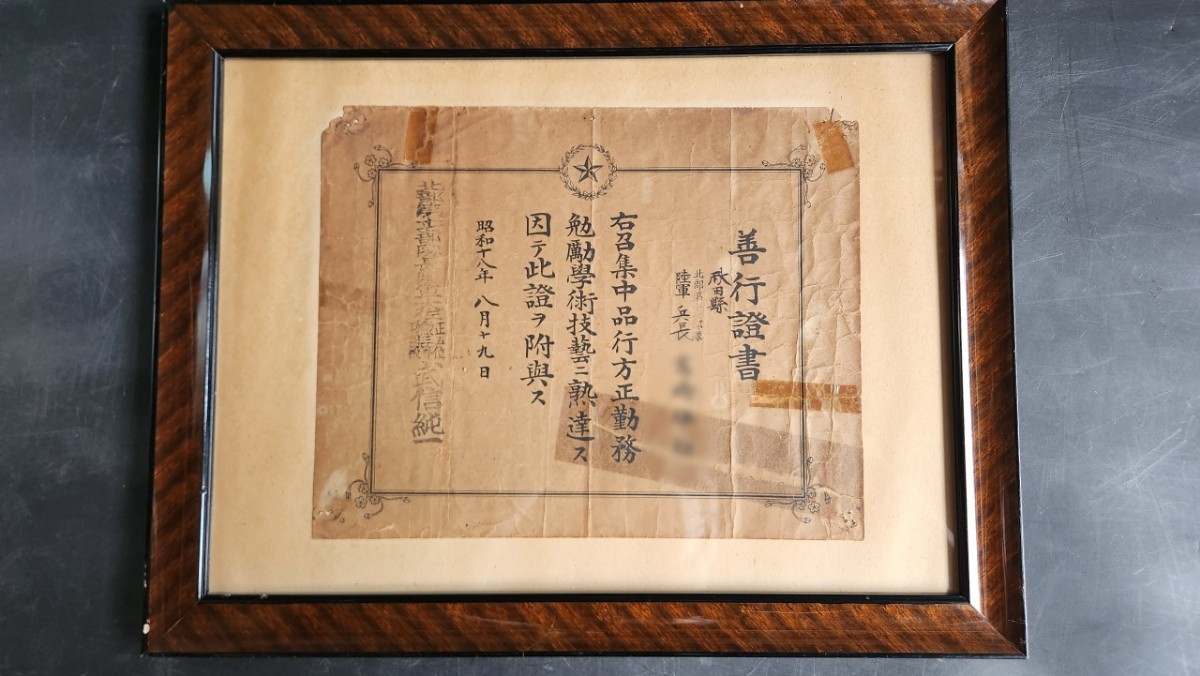 善行證書
秋田縣
陸軍兵長
右召集中品行方正勤務
勉勵學術技藝ニ熟達ス
因テ此證ヲ附與ス
昭和十八年八月十九日
武信純一